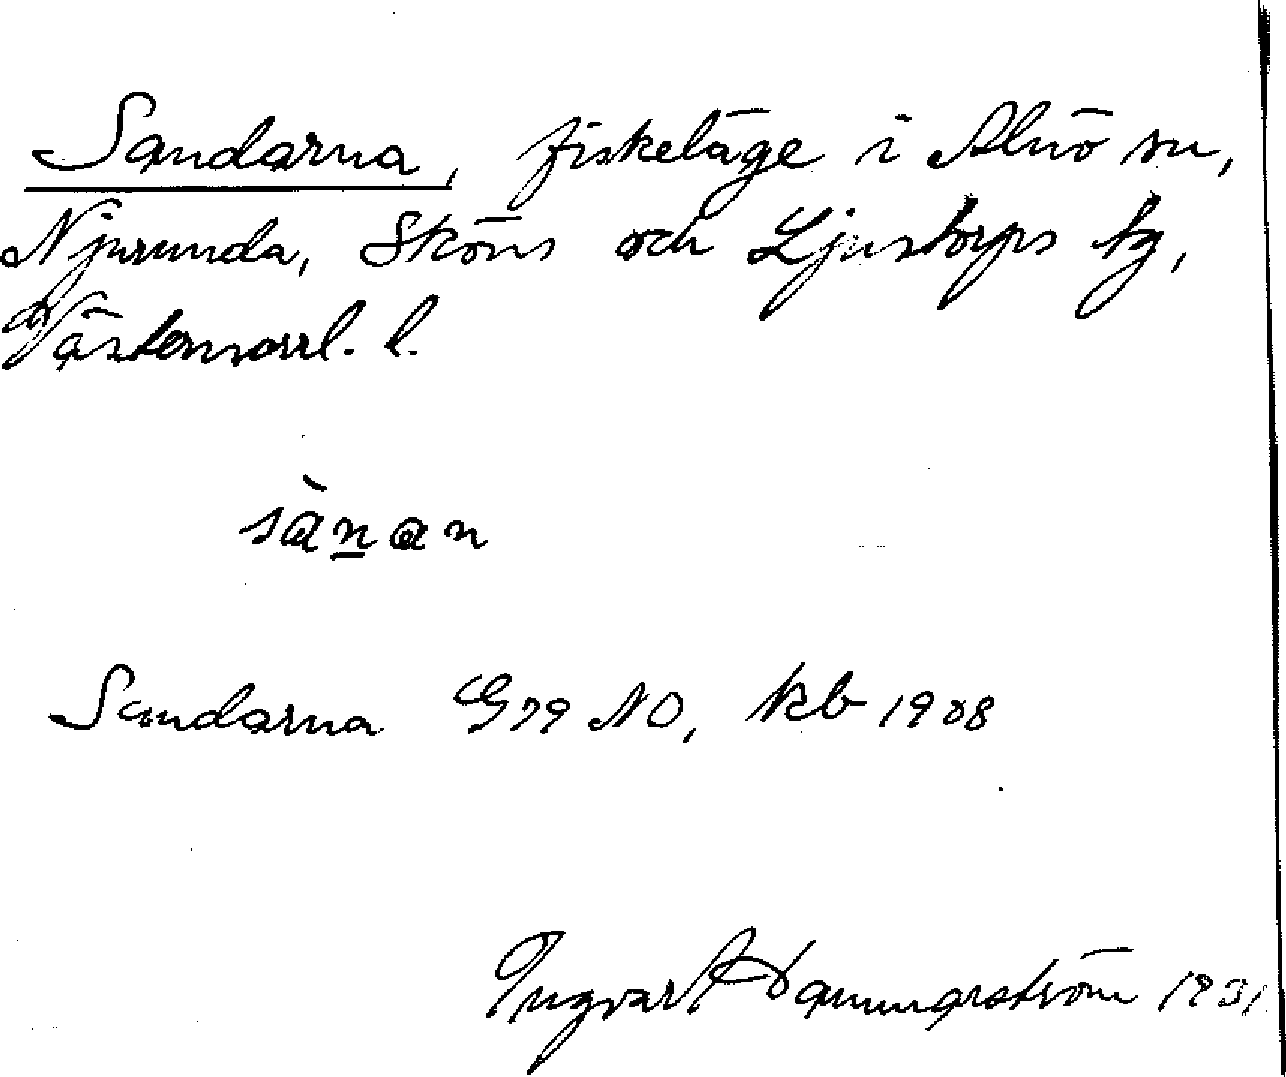 Sandarna, fiskeläge i Alnö sn,
Njurunda, Sköns och Ljustorps tg,
Västernorrl. l.
sànan
Sandarna G79 NO, kb 1908
Ingvar Hammarström 1931